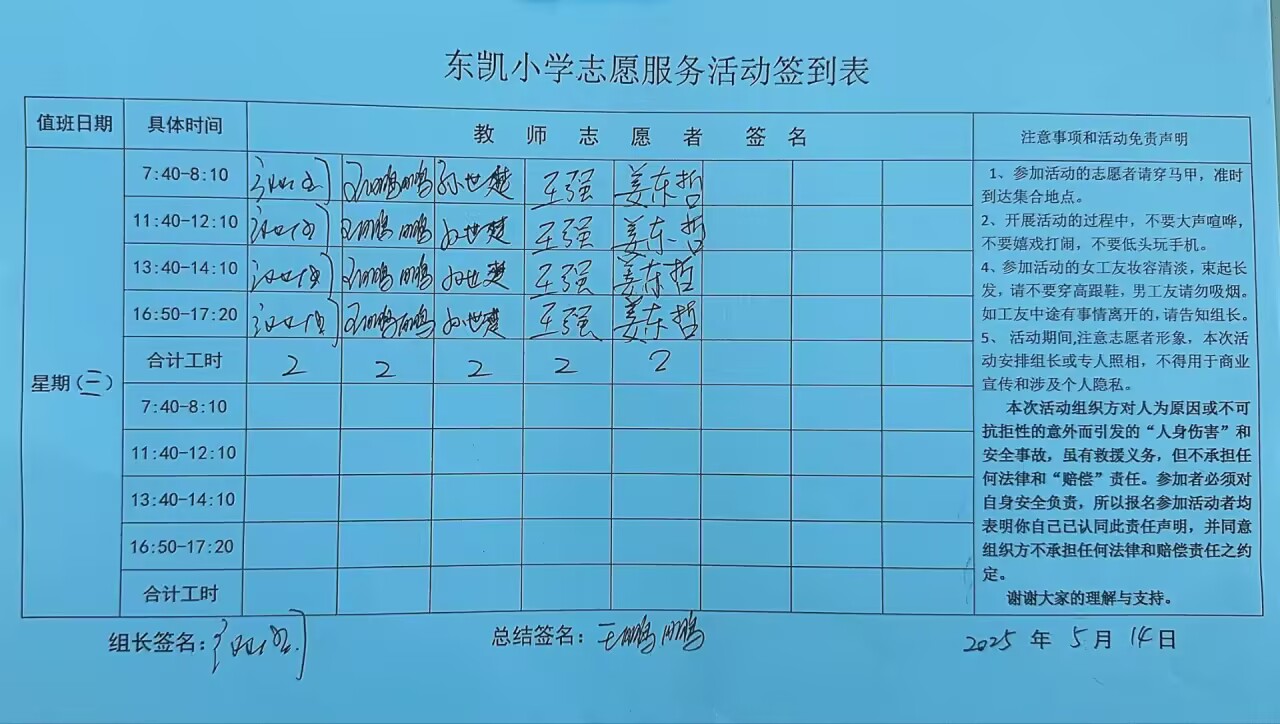 东凯小学志愿服务活动签到表
值班日期 具体时间 教师志愿者签名 注意事项和活动免责声明
星期(三)
7:40-8:10 王鹏鹏 孙世楚 王强 姜东哲
11:40-12:10 王鹏鹏 孙世楚 王强 姜东哲
13:40-14:10 王鹏鹏 孙世楚 王强 姜东哲
16:50-17:20 王鹏鹏 孙世楚 王强 姜东哲
合计工时 2 2 2 2 2
7:40-8:10
11:40-12:10
13:40-14:10
16:50-17:20
合计工时
1、参加活动的志愿者请穿马甲，准时
到达集合地点。
2、开展活动的过程中，不要大声喧哗，
不要嬉戏打闹，不要低头玩手机。
4、参加活动的女工友妆容清淡，束起长
发，请不要穿高跟鞋，男工友请勿吸烟。
如工友中途有事情离开的，请告知组长。
5、 活动期间,注意志愿者形象，本次活
动安排组长或专人照相，不得用于商业
宣传和涉及个人隐私。
本次活动组织方对人为原因或不可
抗拒性的意外而引发的“人身伤害”和
安全事故，虽有救援义务，但不承担任
何法律和“赔偿”责任。参加者必须对
自身安全负责，所以报名参加活动者均
表明你自己已认同此责任声明，并同意
组织方不承担任何法律和赔偿责任之约
定。
谢谢大家的理解与支持。
组长签名: 总结签名: 王鹏鹏 2025 年 5 月 14 日